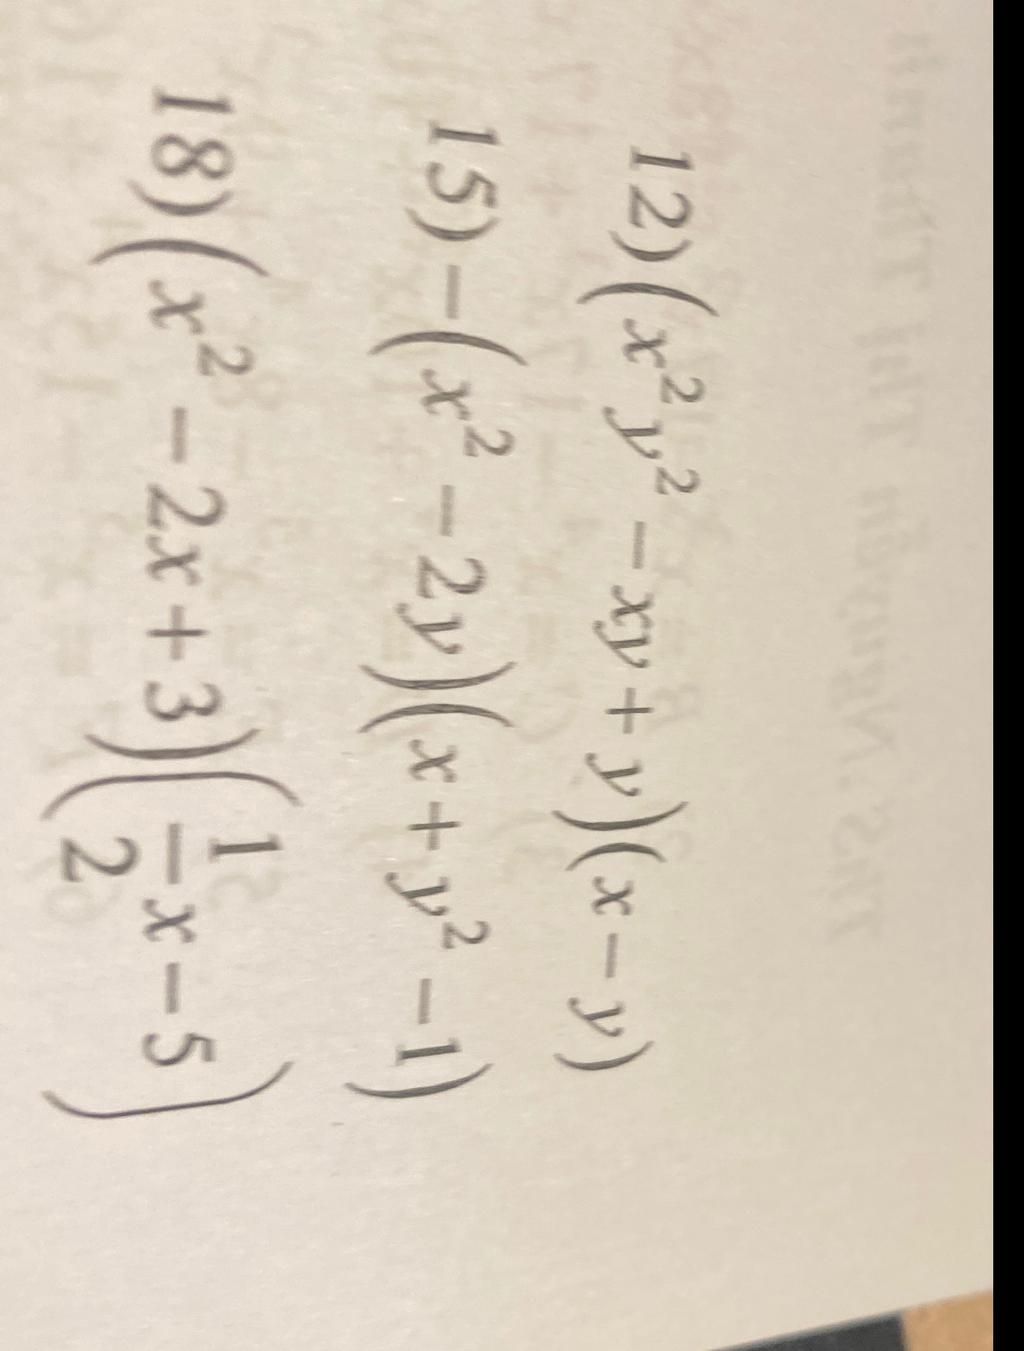 12) (x² y² − xy + y)(x − y)
15) − (x² − 2y)(x + y² − 1)
18) (x² − 2x + 3)(1/2 x − 5)